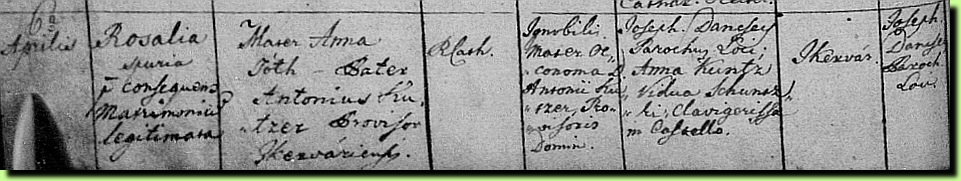 6ta
Aprilis
Rosalia
spuria
p consequens
Matrimonium
legitimata
Mater Anna
Tóth - Pater
Antonius Ku-
"tzer Provisor
Ikerváriens.
R. Cath.
Ignobilis.
Mater Oe-
conoma D.
Antonii Ku
"tzer, Pro-
"visoris
Domin.
Joseph Dancsey
Parochus Loci;
Anna Kuntz
Vidua Schunsz"
"ki, Clavigerissa
in Castello.
Ikervár.
Joseph.
Dancsey
Paroch.
Loci.